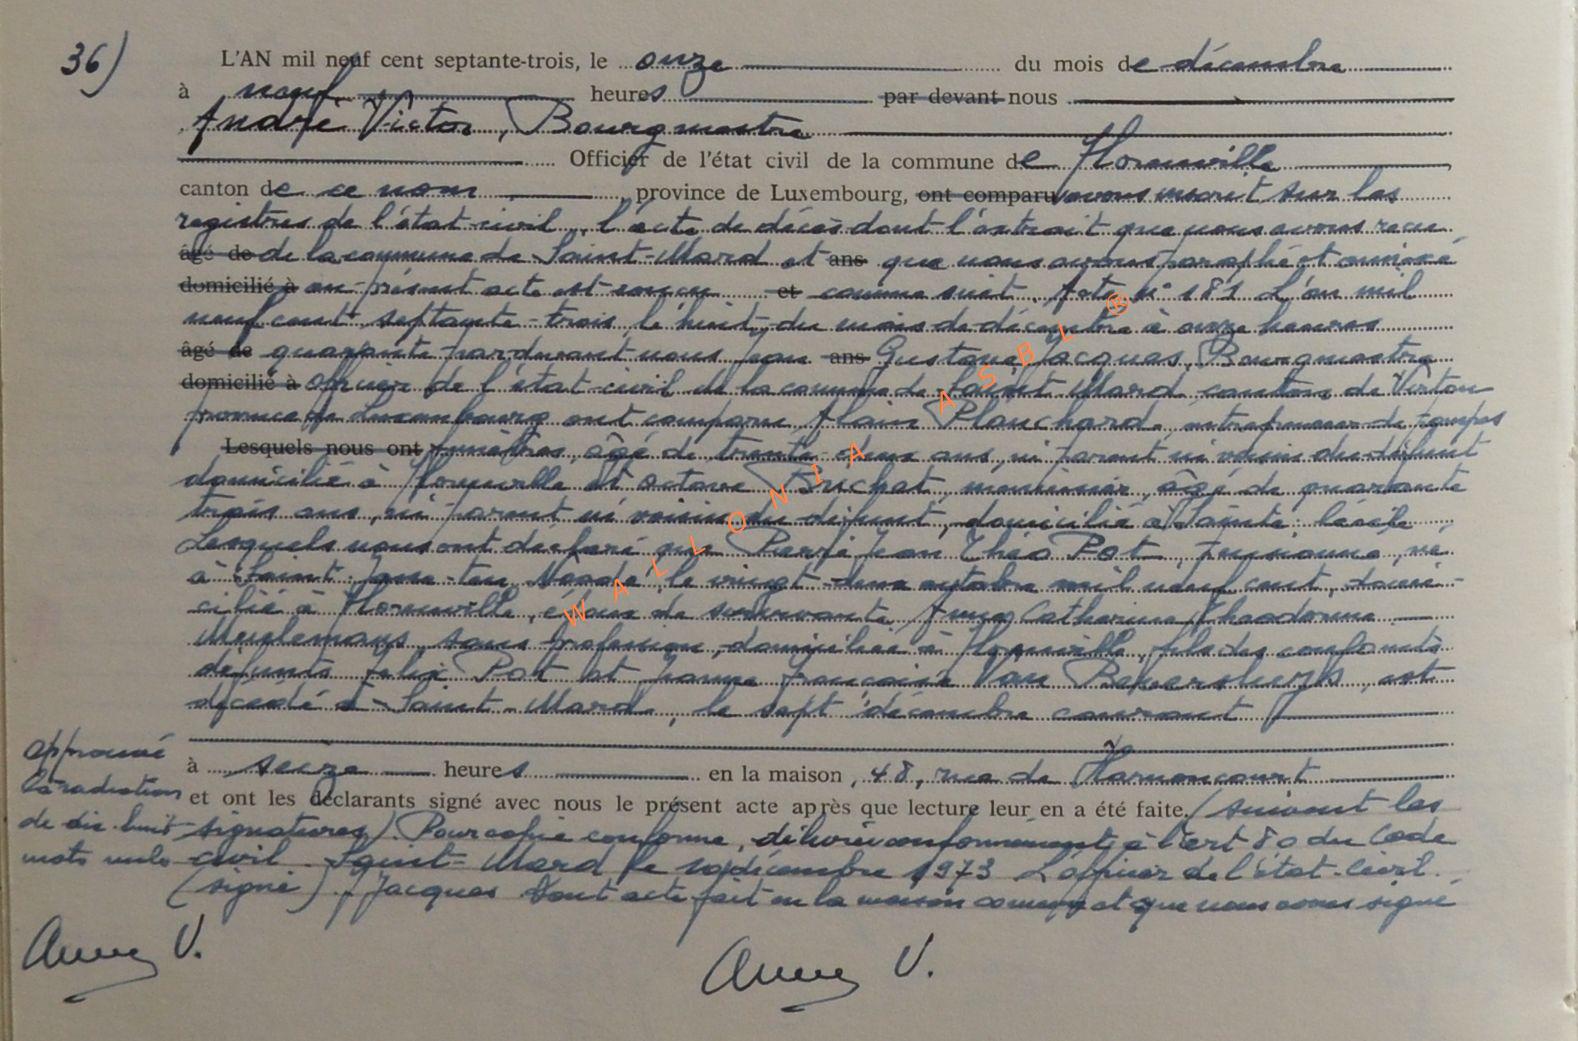 36)
L'AN mil neuf cent septante-trois, le onze du mois de décembre
à neuf heures par devant nous
André Victor, Bourgmestre
Officier de l'état civil de la commune de Florenville
canton de ce nom, province de Luxembourg, ont comparu avons inscrit sur les
registres de l'état-civil, l'acte de décès dont l'extrait que nous avons reçu
âgé de de la commune de Saint-Mard et ans que nous avons paraphé et annexé
domicilié à au présent acte est conçu et comme suit. Acte n° 181 L'an mil
neuf cent septante-trois, le huit du mois de décembre à onze heures
âgé de quarante pardevant nous Jean ans Gustave Jacques, Bourgmestre
domicilié à officier de l'état civil de la commune de Saint Mard canton de Virton
province de Luxembourg ont comparu Alain Planchard entrepreneur de pompes
Lesquels nous ont funèbres, âgé de trente-deux ans, ni parent ni voisin du défunt
domicilié à Florenville et Octave Brichat, menuisier, âgé de quarante
trois ans, ni parent ni voisin du défunt, domicilié à Sainte-Cécile
Lesquels nous ont déclaré que Pierre Jean Théo Pot, pensionné, né
à Saint-Josse-ten-Noode, le vingt-deux octobre mil neuf cent, domi-
cilié à Florenville, époux de survivante Anne Catherine Théodorine
Meulemans, sans profession, domiciliée à Florenville, fils des conjoints
défunts Felix Pot et Jeanne Françoise Van, est
décédé à Saint-Mard, le sept décembre courant
à seize heures en la maison, 48, rue de Harnoncourt
et ont les déclarants signé avec nous le présent acte après que lecture leur en a été faite. (suivent les
signatures). Pour copie conforme, délivrée conformément à l'art 80 du Code
civil. Saint-Mard le 10 décembre 1973 L'officier de l'état-civil.
(signé) J Jacques Dont acte fait en la maison commune et que nous avons signé
approuvé
la radiation
de dix-huit
mots nuls
V.
V.
WALLONIA ASBL ®